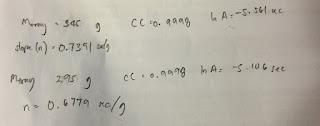 M = 345 g CC = 0.9998 ln A = -5.361 sec
slope (n) = 0.7391 sec/g
295 g CC = 0.9998 ln A = -5.106 sec
n = 0.6779 sec/g